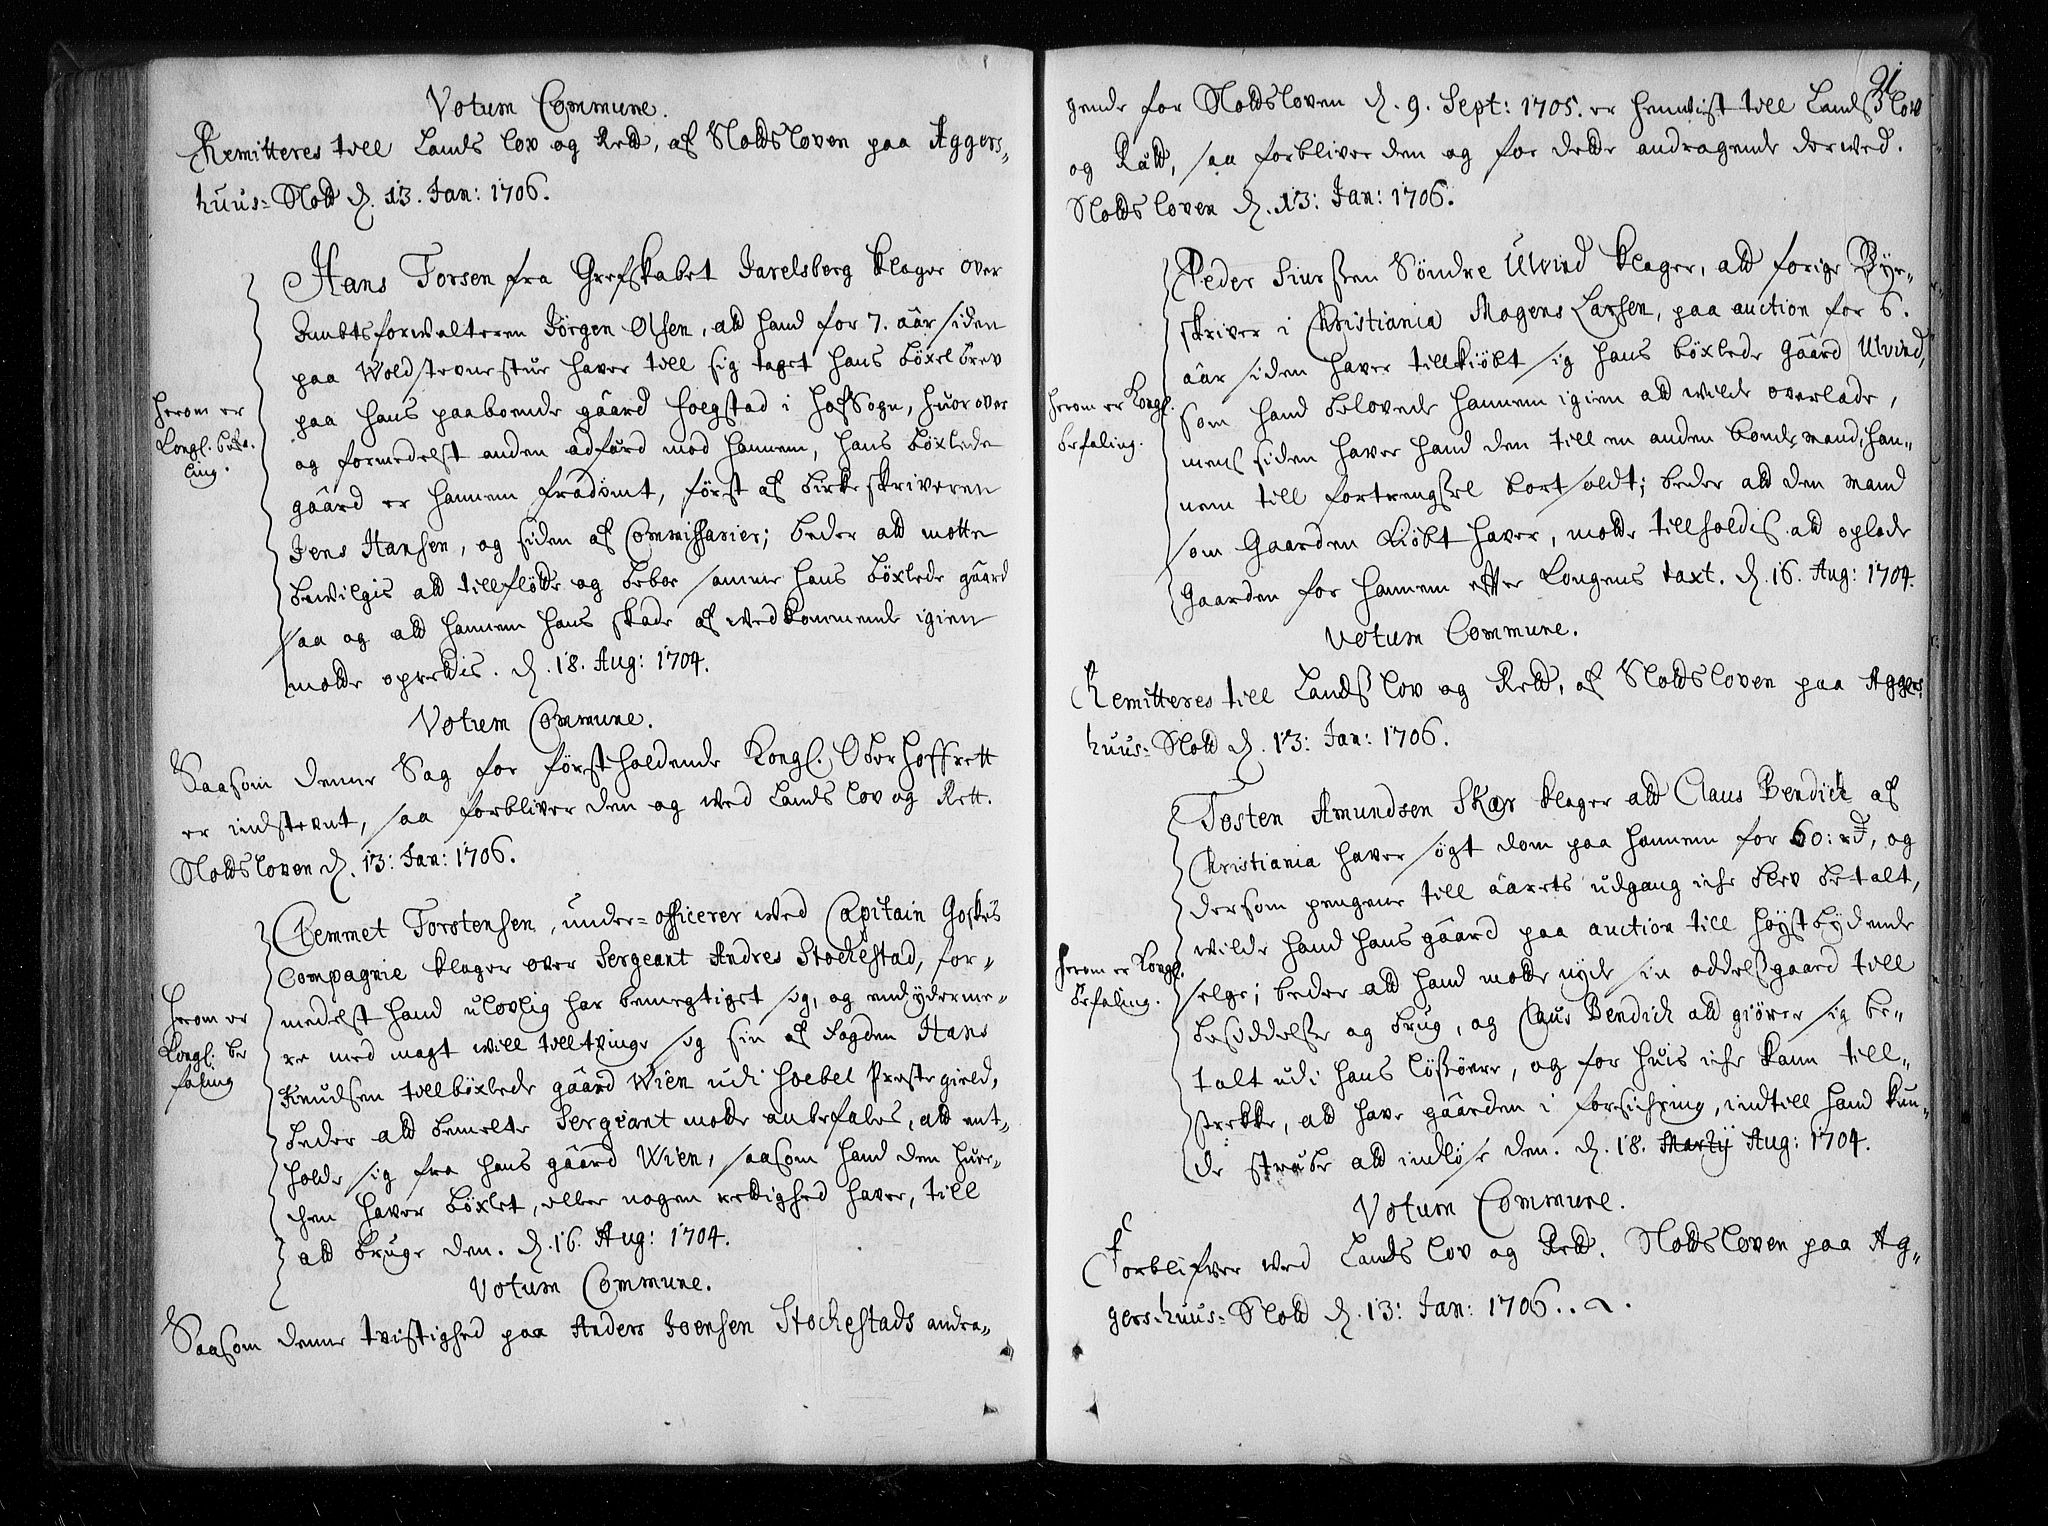 Votum Commune.
Remitteres till Lands lov og Rett, af Slotsloven paa Aggers-
huus-Slott d. 13. Jan: 1706.
Hans Torsen fra Grefskabet Jarelsberg klager over
Ambtsforwalteren Jörgen Olsen, att hand for 7. aar siden
paa Woldstevnestue haver till sig taget hans böxel brev
paa hans paaboende gaard hoegstad i hof Sogn, huorover
og formedelst anden adfærd mod hannem, hans böxlede
gaard er hannem fradömt, først af birkeskriveren
Jens Hansen, og siden af Commissarier; beder att motte
bevilgis att tillflötte og beboe samme hans böxlede gaard
saa og att hannem hans skade af wedkommende igien
motte oprettis. d. 18. Aug: 1704.
herom er
Kongl. befa-
ling.
Votum Commune.
Saasom denne Sag for førstholdende Kongl. Ober Hoffrett
er indstevnt, saa forbliver den og wed Lands lov og Rett.
Slotsloven d. 13: Jan: 1706.
Clemmet Torstensen, under-officerer wed Capitain Goskes
Compagnie klager over Sergeant Andres Stockestad, for-
medelst hand ulovlig har bemegtiget sig, og endyderme-
re med magt will tilltvinge sig sin af Fogden Hans
Knudsen tillböxlede gaard Wien udi hoebel Prestegield,
beder att bemelte Sergeant motte anbefales, att ent-
holde sig fra hans gaard Wien, saasom hand den huer-
chen haver böxlet, eller nogen rettighed haver, till
att bruge den. d. 16. Aug: 1704.
Herom er
Kongl: be
faling
Votum Commune.
Saasom denne tvistighed paa Anders Joensen Stockestads andra-
91
gende for Slotsloven d. 9. Sept: 1705. er henviist till Lands lov
og Rætt, saa forbliver den og for dette andragende derwed.
Slotsloven d. 13: Jan: 1706.
Peder Siurssen Söndre Ulvind klager, att forige Bye-
skriver i Christiania Mogens Larssen, paa auction for 6.
aar siden haver tillkiöbt sig hans böxlede gaard Ulvind,
som hand belovede hannem igien att wilde overlade,
mens siden haver hand den till en anden bondemand, han-
nem till fortrengsel bortsoldt; beder att den mand
som Gaarden kiöbt haver, motte tillholdis att oplade
Gaarden for hannem efter Kongens taxt. d. 16. Aug: 1704.
herom er Kongl.
befaling.
Votum Commune.
Remitteres till Lands lov og Rett, af Slotsloven paa Aggers-
huus-Slott d. 13: Jan: 1706.
Tosten Amundsen Skær klager att Claus Bendich af
Christiania haver søgt dom paa hannem for 60: rd, og
dersom pengene till aarets udgang iche blev betalt,
wilde hand hans gaard paa auction till høystbydende
selge; beder att hand motte nyde sin oddelsgaard till
besiddelse og brug, og Claus Bendich att giøre sig be-
talt udi hans løssøere, og for huis iche kann till-
strekke, att have gaarden i forsichring, indtill hand kun-
de strebe att indløse den. d. 18. Martij Aug: 1704.
herom er Kongl.
befaling.
Votum Commune.
Forblifver wed Lands lov og Rett. Slotsloven paa Ag-
gershuus-Slott d. 13: Jan: 1706.